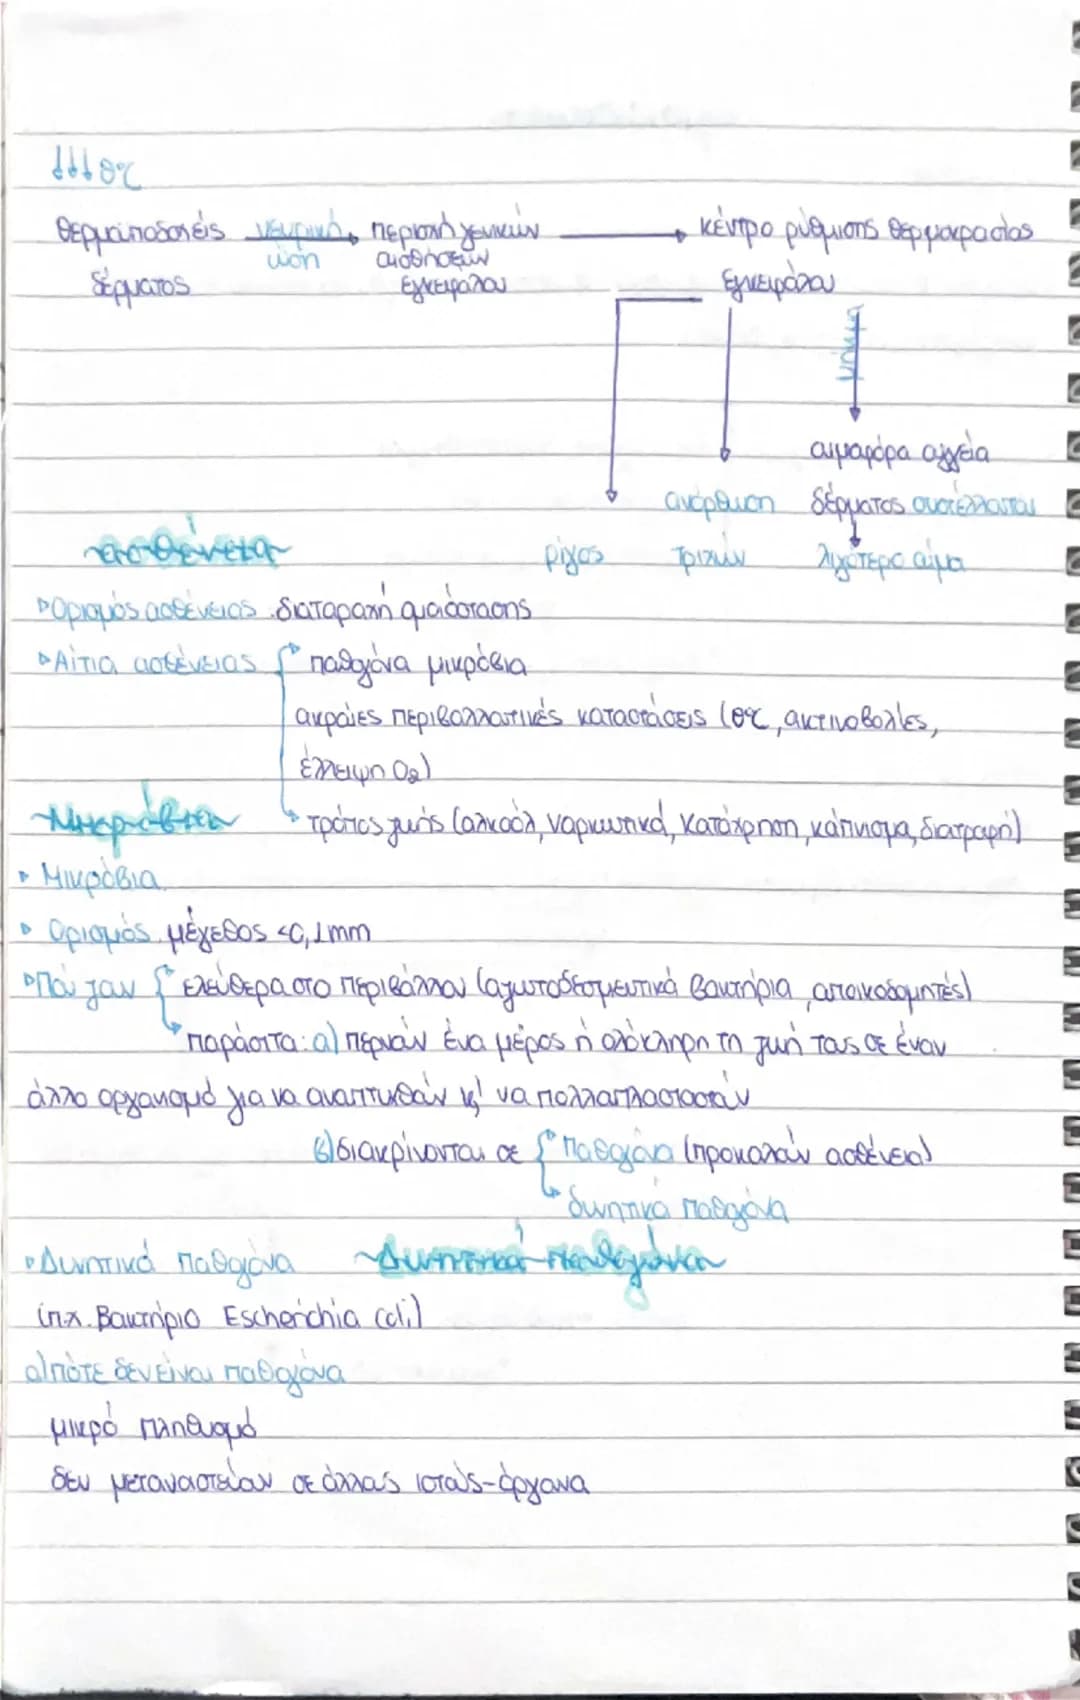 ↓↓↓θ°C
θερμοϋποδοχείς νευρική περιοχή γενικών κέντρο ρύθμισης θερμοκρασίας
ώση αισθήσεων
δέρματος εγκεφάλου εγκεφάλου
μήνυμα
αιμοφόρα αγγεία
ανόρθωση δέρματος συστέλλονται
ασθένεια ρίγος τριχών λιγότερο αίμα
Ορισμός ασθένειας: διαταραχή ομοιόστασης
Αίτια ασθένειας παθογόνα μικρόβια
ακραίες περιβαλλοντικές καταστάσεις (θ°C, ακτινοβολίες,
έλλειψη O₂)
Μικρόβια τρόπος ζωής (αλκοόλ, ναρκωτικά, κατάχρηση, κάπνισμα, διατροφή)
Μικρόβια
Ορισμός: μέγεθος <0,1mm
Πού ζουν ελεύθερα στο περιβάλλον (αζωτοδεσμευτικά βακτήρια, αποικοδομητές)
παράσιτα: α) περνούν ένα μέρος ή ολόκληρη τη ζωή τους σε έναν
άλλο οργανισμό για να αναπτυχθούν κ' να πολλαπλασιαστούν
β) διακρίνονται σε παθογόνα (προκαλούν ασθένεια)
δυνητικά παθογόνα
Δυνητικά παθογόνα Δυνητικά παθογόνα
(π.χ. Βακτήριο Escherichia coli)
α) πότε δεν είναι παθογόνα
μικρό πληθυσμό
δεν μεταναστεύουν σε άλλους ιστούς-όργανα